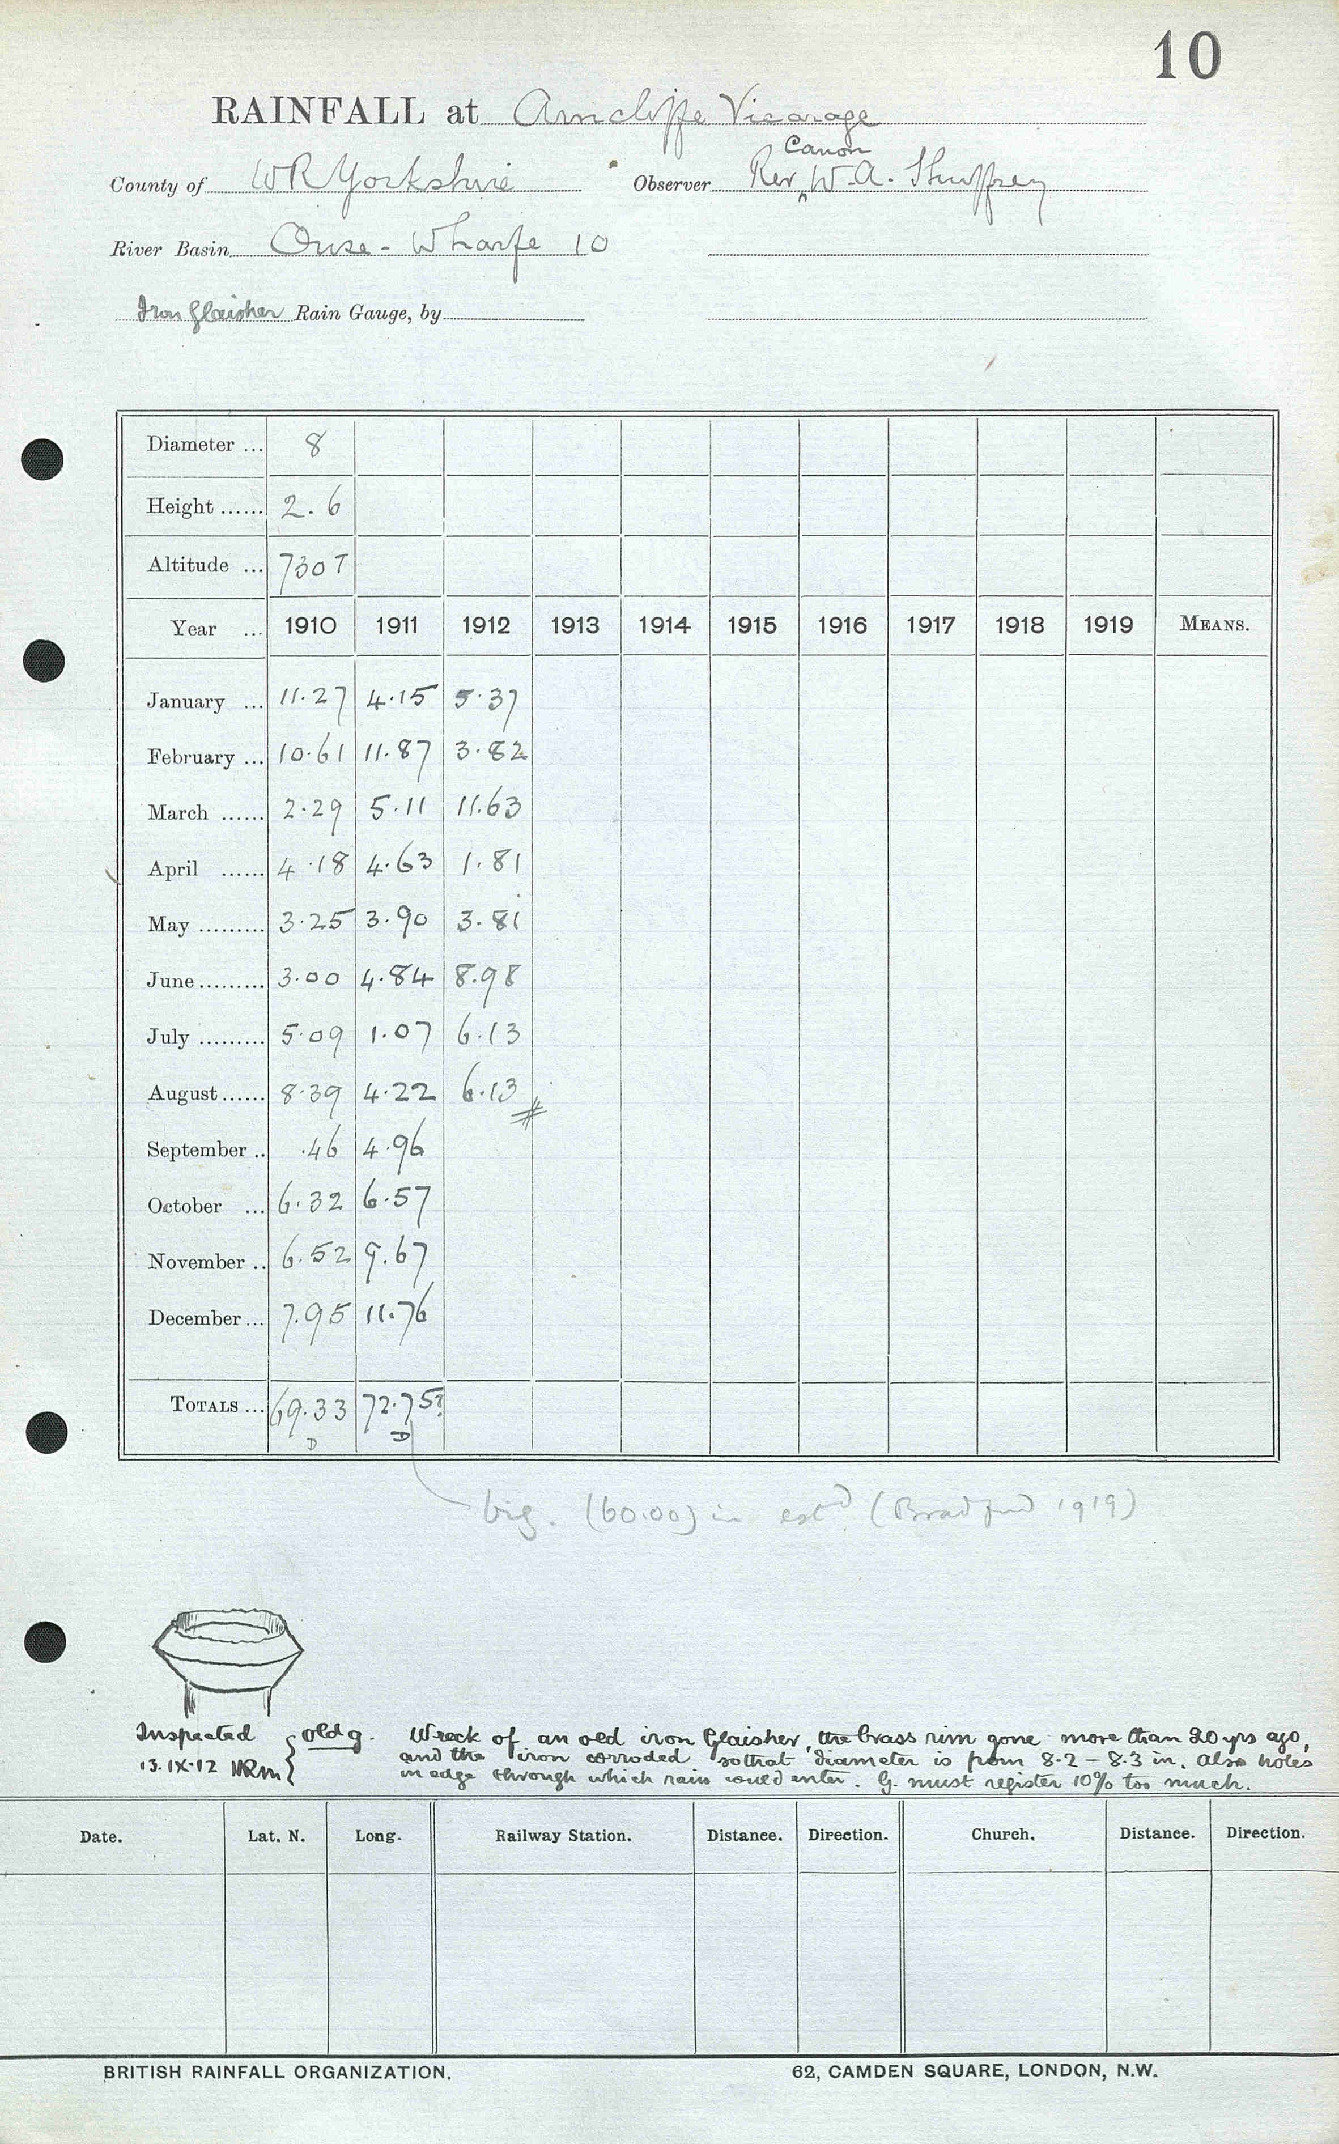 10
RAINFALL at Arncliffe Vicarage
Canon
County of WR Yorkshire Observer Rev W.A. Shuffrey
River Basin Ouse - Wharfe 10
Iron Glaisher Rain Gauge, by
Diameter ... 8
Height ...... 2.6
Altitude ... 730 T
Year ... 1910 1911 1912 1913 1914 1915 1916 1917 1918 1919 MEANS.
January ... 11.27 4.15 5.37
February ... 10.61 11.87 3.82
March ...... 2.29 5.11 11.63
April ...... 4.18 4.63 1.81
May ......... 3.25 3.90 3.81
June ......... 3.00 4.84 8.98
July ......... 5.09 1.07 6.13
August ...... 8.39 4.22 6.13 #
September .. .46 4.96
October ... 6.32 6.57
November .. 6.52 9.67
December ... 7.95 11.76
TOTALS ... 69.33 72.75?
D D
big. (60.00) in estd (Bradford 1919)
Inspected old g. Wreck of an old iron Glaisher, the brass rim gone more than 20 yrs ago,
13.IX.12 and the iron corroded so that diameter is from 8.2 - 8.3 in. Also holes
in edge through which rain could enter. G. must register 10% too much.
Date. Lat. N. Long. Railway Station. Distance. Direction. Church. Distance. Direction.
BRITISH RAINFALL ORGANIZATION. 62, CAMDEN SQUARE, LONDON, N.W.